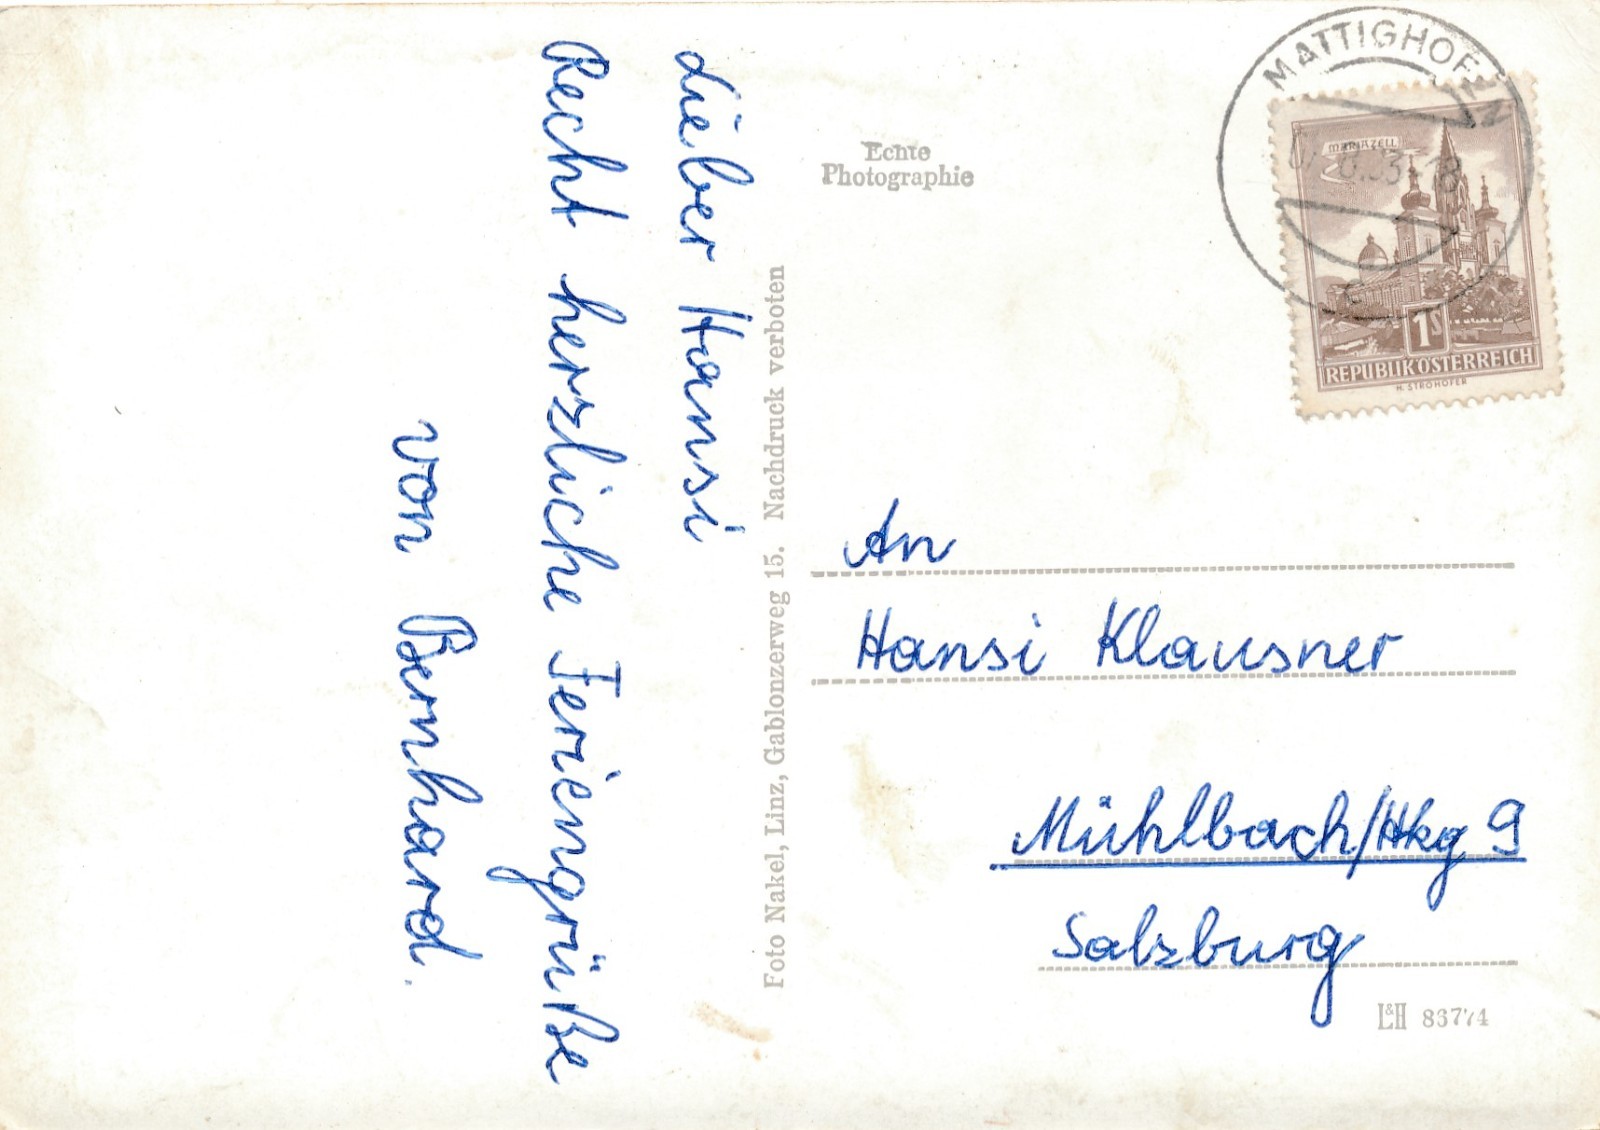 Lieber Hansi
Recht herzliche Feriengrüße
von Bernhard.
Echte
Photographie
Foto Nakel, Linz, Gablonzerweg 15. Nachdruck verboten
MATTIGHOFEN
MARIAZELL
1S
REPUBLIK ÖSTERREICH
H. STROHOFER
An
Hansi Klausner
Mühlbach/Hkg 9
Salzburg
L&H 83774